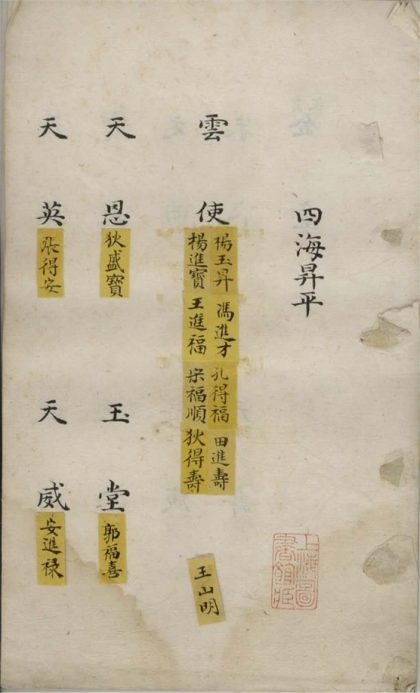 四海昇平
上海圖
書館藏
雲使
楊玉昇 馮進才 孔得福 田進壽
楊進寶 王進福 福順 狄得壽
王山明
天恩 狄盛寶 玉堂 郭福喜
天英 張得安 天威 安進禄